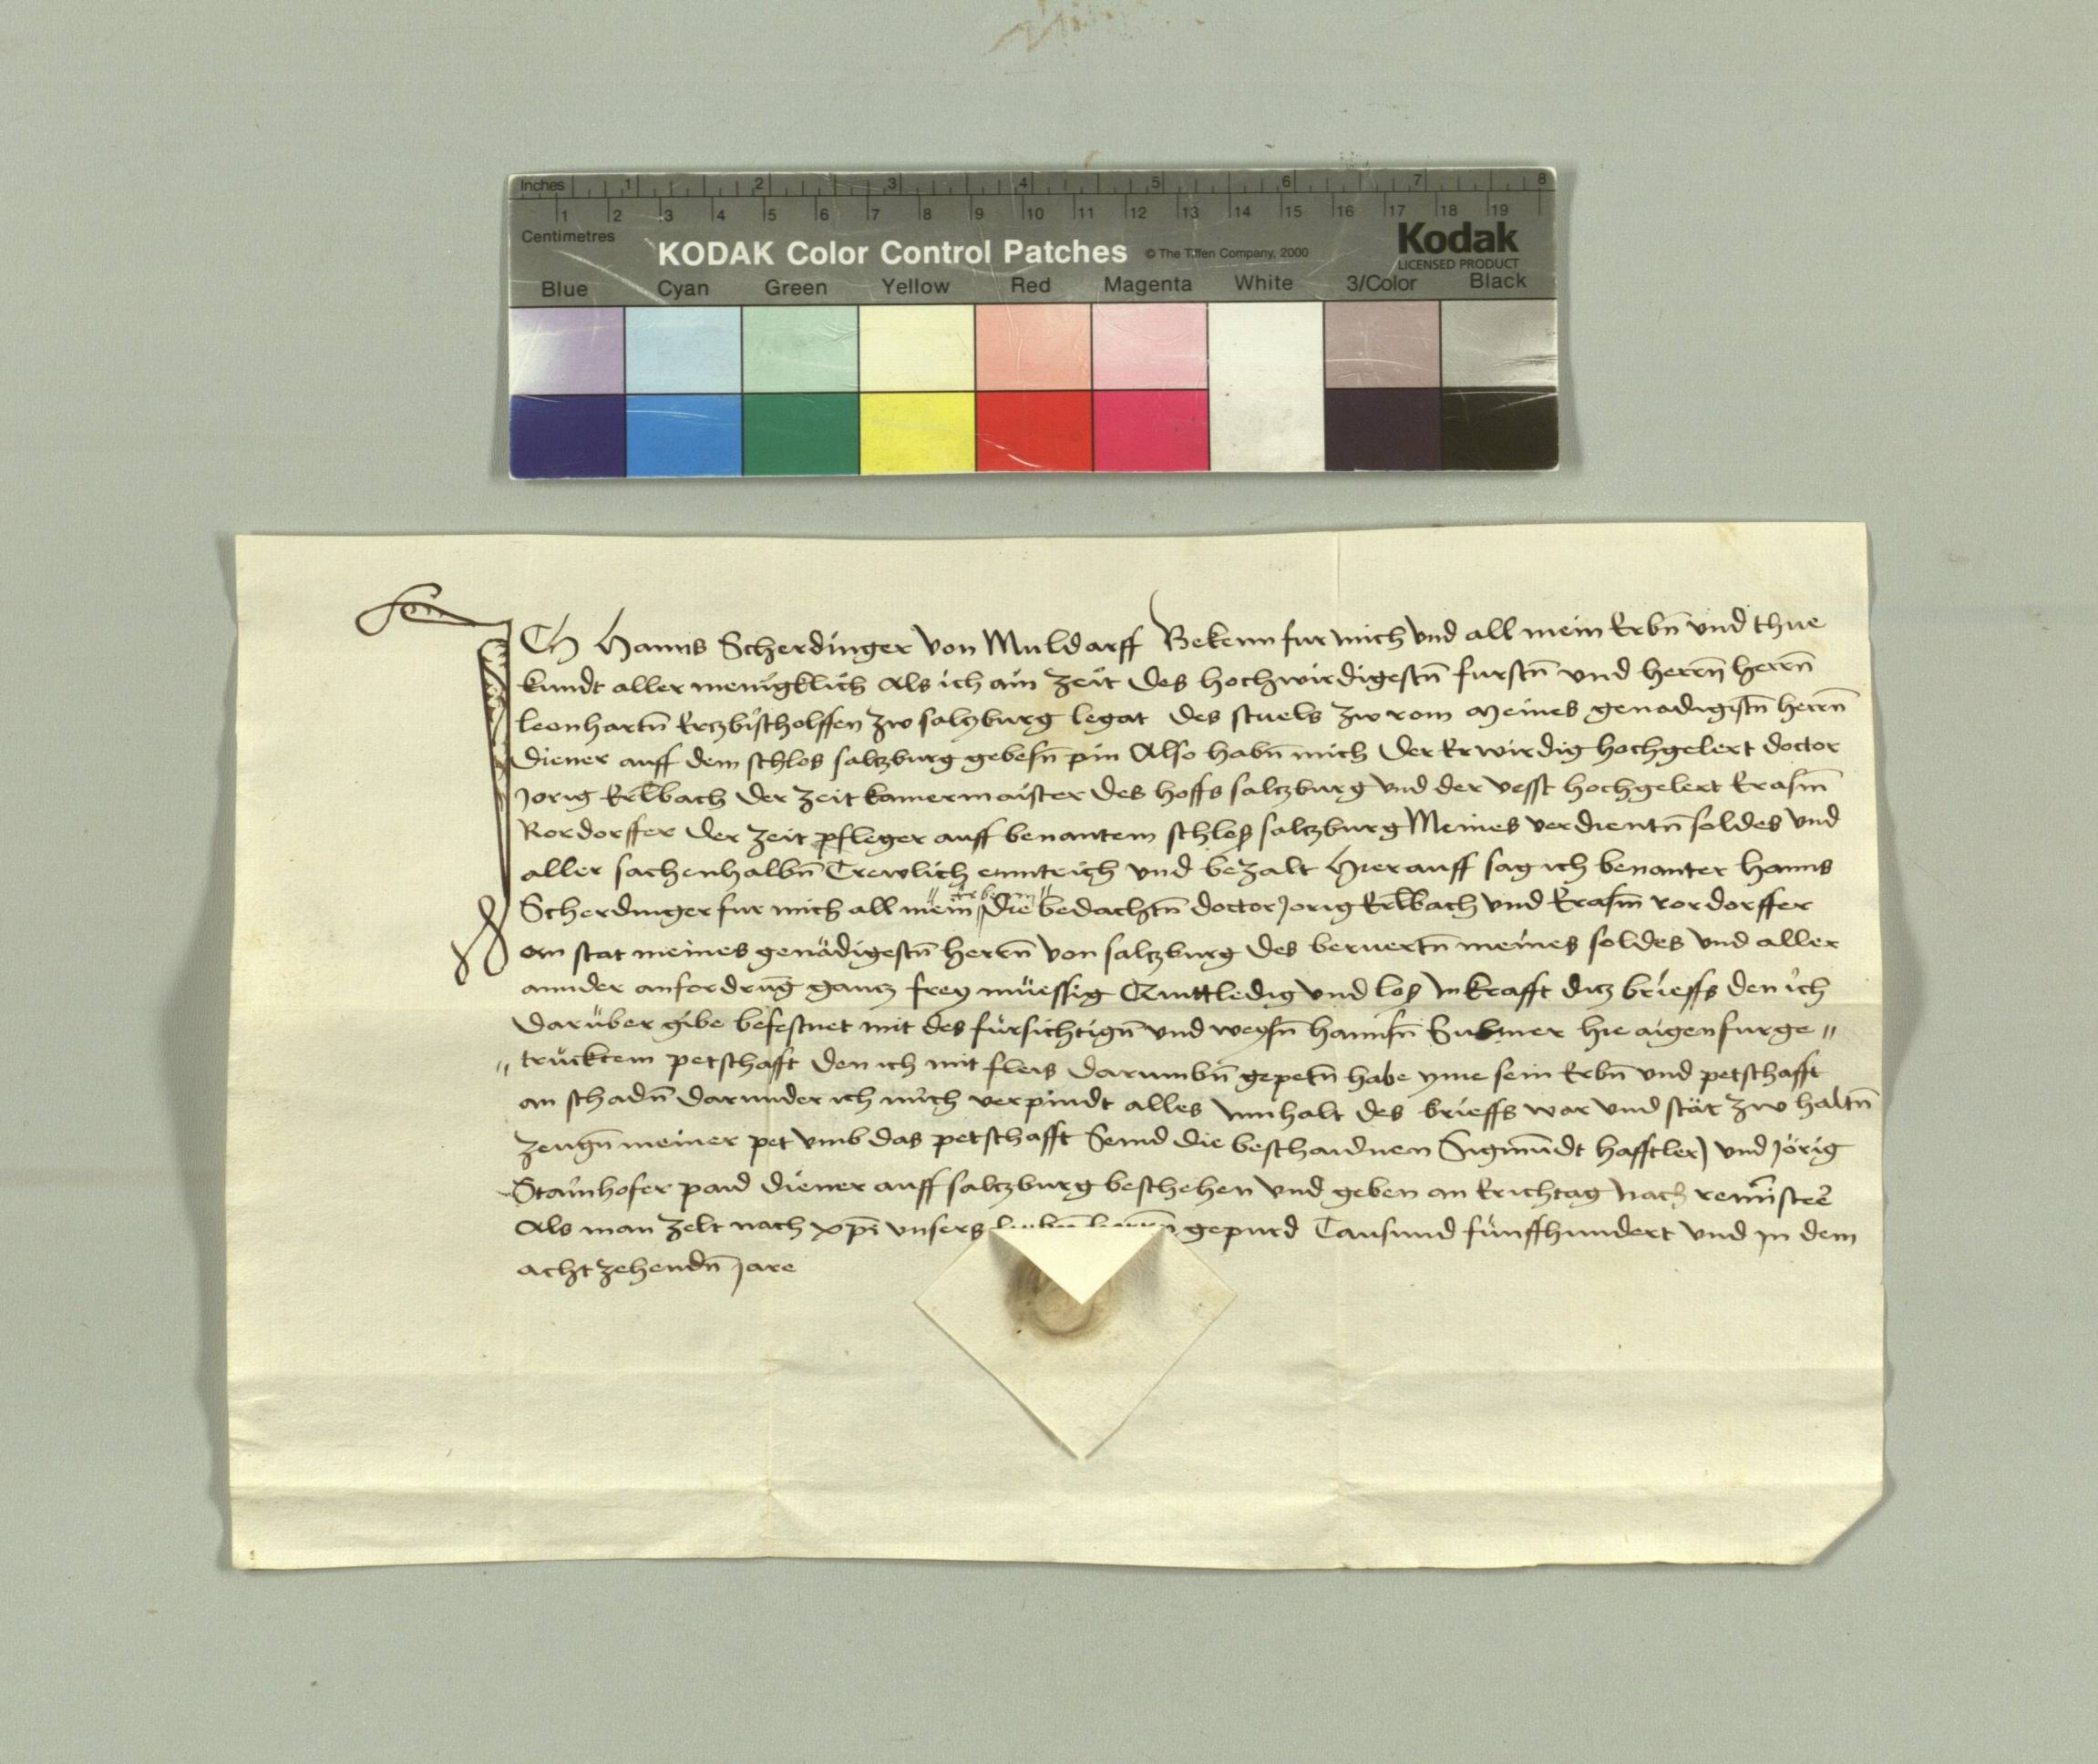 Inches 1 2 3 4 5 6 7 8
1 2 3 4 5 6 7 8 9 10 11 12 13 14 15 16 17 18 19
Centimetres
KODAK Color Control Patches © The Tiffen Company, 2000 Kodak
LICENSED PRODUCT
Blue Cyan Green Yellow Red Magenta White 3/Color Black
ICh Hanns Scherdinger von Muldarff Bekenn fur mich vnd all mein Erbn̄ vnd thue
kundt aller menigklich Als ich ain zeit des hochwirdigestn̄ furstn̄ vnd herrn̄ herrn̄
leonhartn̄ Erczbischolffen zw salczburg legat des stuels zw rom Meines genadigistn̄ herrn̄
Diener auff dem schlos salczburg gebesn̄ pin Also habn̄ mich Der Erwirdig hochgelert doctor
Jorig Erlbach der zeit kamermaister des hoffs salczburg vnd der vesst hochgelert Erasm̄
Rordorffer der zeit pfleger auff benantem schlos salczburg Meines verdientn̄ soldes vnd
aller sachenhalbn̄ Trewlich enntricht vnd bezalt Hierauff sag ich benanter hanns
Scherdinger fur mich all mein erbenn die bedachtn̄ doctor Jorig Erlbach vnd Erasm̄ rordorffer
an stat meines genädigestn̄ herrn̄ von salczburg des beruertn̄ meines soldes vnd aller
annder anfordrūg gancz frey müessig Quittledig vnd los In krafft dicz brieffs den ich
darüber gibe befestnet mit des fürsichtign̄ vnd weysn̄ hannsn̄ hie aigen furge〃
〃trücktem petschafft den ich mit fleis darumbn̄ gepetn̄ habe yme sein Erbn̄ vnd petschafft
an schadn̄ darunder ich mich verpindt alles Innhalt des brieffs war vnd stät zw haltn̄
zeugn̄ meiner pet vmb das petschafft Seind die beschaidnen Sigmūdt hafftler vnd Jörig
Stainhofer paid diener auff salczburg beschehen vnd geben an Erichtag nach
Als man zelt nach xp̄i vnsers liebn̄ herrn̄ gepurd Tausund fünffhundert vnd In dem
achtzehendn̄ Jare